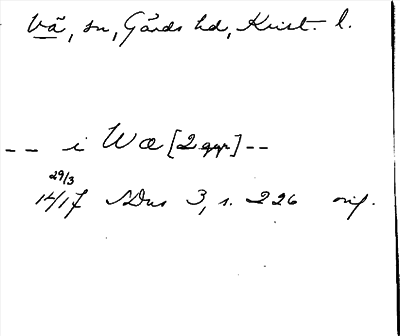 Vä, sn, Gärds hd, Krist. l.
-- i Wæ [2 ggr] --
29/3
1417 SDns 3, s. 226 orig.